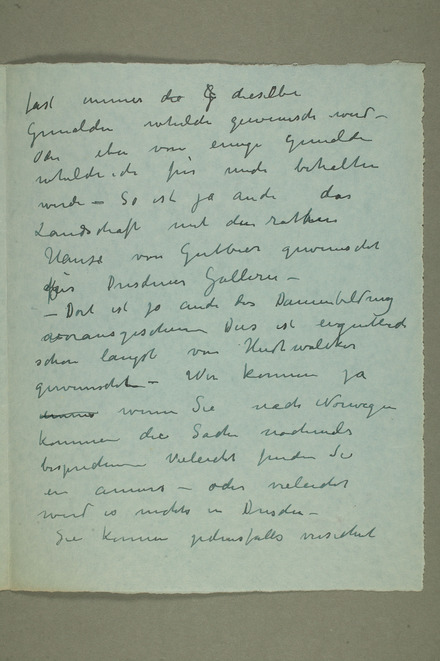 fast immer die dieselbe
Gemälde gewünscht wird –
Oder eben von einige Gemälde
die für mich behalten
werde – So ist ja auch das
Landschaft mit den rothen
Hause von Gutbier gewünscht
für Dresdner Gallerie –
– Dort ist ja auch das Damenbildnis
Das ist eigentlich
schon langst von Hudtwalcker
gewunscht – Wir konnen ja
wenn Sie nach Norwegen
kommen die Sache nochmals
besprechen Vieleicht finden Sie
ein anderes – oder vieleicht
wird es nichts in Dresden –
Sie konnen jedenfalls versichert